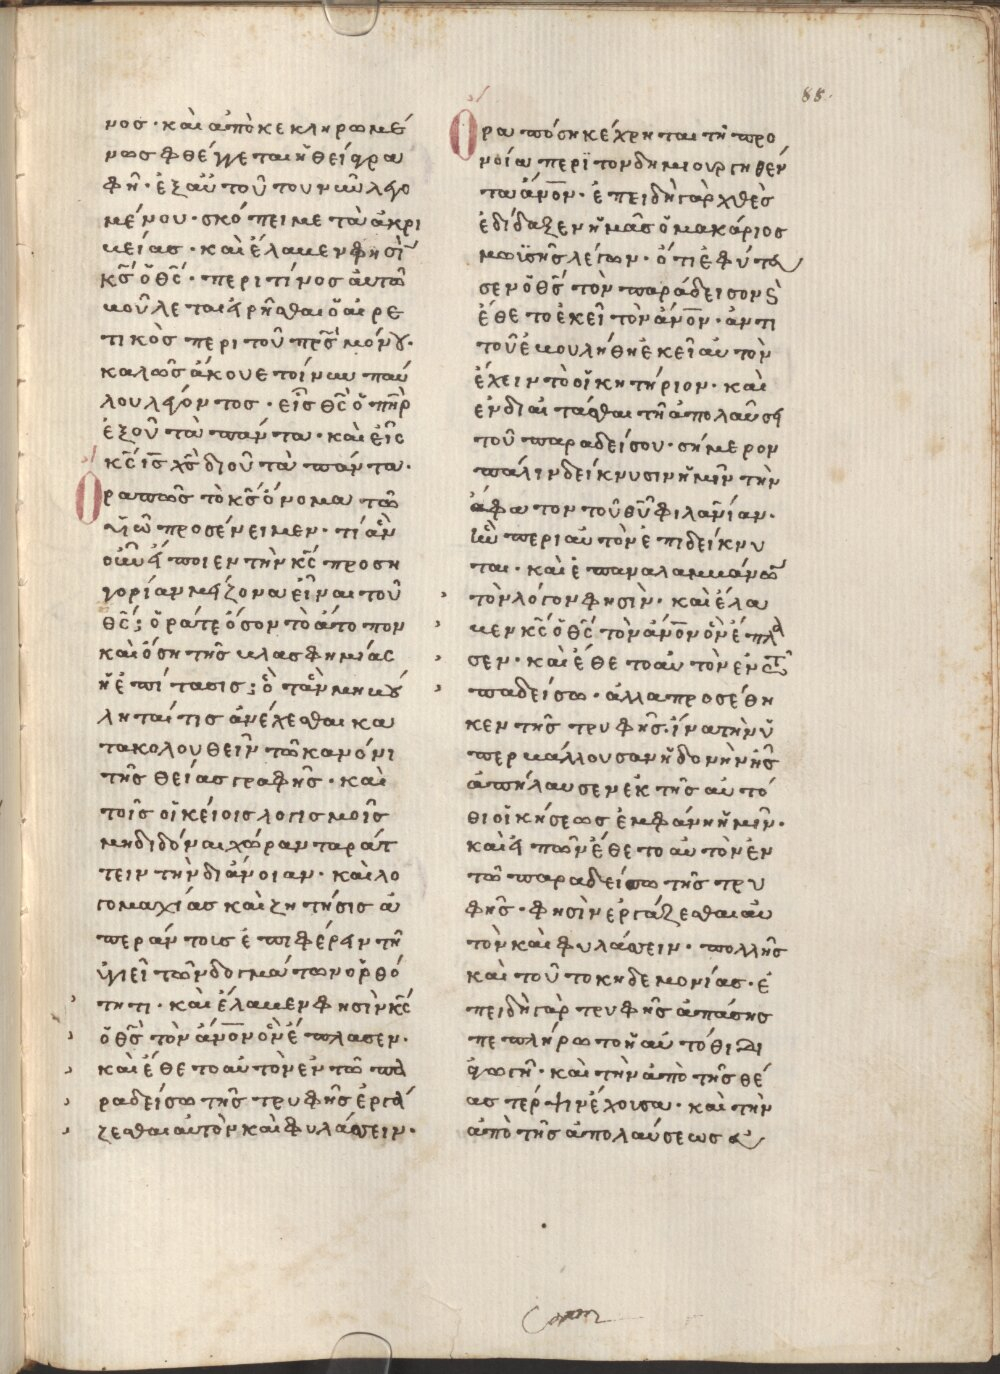 88.
νος · καὶ ἀποκεκληρωμέ
νως φθέγγεται ἡ θεία γρα
φή · ἐξ αὐτοῦ τοῦ νῦν λεγο
μένου · σκόπει μετὰ ἀκρι
βείας · καὶ ἔλαβεν φησὶ
κ̅ς̅ ὁ θ̅ς̅ · περὶ τίνος αὐτῶ
βούλεται εἰρῆσθαι ὁ αἱρε
τικὸς περὶ τοῦ π̅ρ̅ς̅ μόνου ·
καλῶς ἄκουε τοίνυν παύ
λου λέγοντος · εἷς θ̅ς̅ ὁ π̅η̅ρ̅
ἐξ οὗ τὰ πάντα · καὶ εἷς
κ̅ς̅ ι̅ς̅ χ̅ς̅ δι οὗ τὰ πάντα ·
Ὅρα πῶς τὸ κ̅ς̅ ὄνομα τῶ
υἱῶ προσένειμεν · τί ἂν
οὖν εἴποιεν τὴν κ̅ς̅ προση
γορίαν μείζονα εἶναι τοῦ
θ̅ς̅; ὁρᾶτε ὅσον τὸ ἄτοπον
καὶ ὅση τῆς βλασφημίας
ἡ ἐπίτασις; ὅταν μὴ βού
ληταί τις ἀνέχεσθαι κα
τακολουθεῖν τῶ κανόνι
τῆς θείας γραφῆς · καὶ
τοῖς οἰκείοις λογισμοῖς
μὴ διδόναι χώραν ταράτ
τειν τὴν διάνοιαν · καὶ λο
γομαχίας καὶ ζητήσις ἀ
περάντους ἐπιφέρειν τῆ
ὑγιεῖ τῶν δογμάτων ὀρθό
τητι · καὶ ἔλαβεν φησὶν κ̅ς̅
ὁ θ̅ς̅ τὸν ἄν̅ο̅ν̅ ὃν ἔπλασεν ·
καὶ ἔθετο αὐτὸν ἐν τῶ πα
ραδείσω τῆς τρυφῆς ἐργά
ζεσθαι αὐτὸν καὶ φυλάσσειν ·
Ὅρα πόση κέχρηται τῆ προ
νοία περὶ τὸν δημιουργηθέν
τα ἄν̅ο̅ν̅ · ἐπειδὴ γὰρ χθὲς
ἐδίδαξεν ἡμᾶς ὁ μακάριος
μωϊσῆς λέγων · ὅτι ἐφύτευ
σεν ὁ θ̅ς̅ τὸν παράδεισον ϗ
ἔθετο ἐκεῖ τὸν ἄν̅ο̅ν̅ · ἀντι
τοῦ ἐβουλήθη ἐκεῖ αὐτὸν
ἔχειν τὸ οἰκητήριον · καὶ
ἐνδιαιτᾶσθαι τῆ ἀπολαύσει
τοῦ παραδείσου · σήμερον
πάλιν δείκνυσιν ἡμῖν τὴν
ἄφατον τοῦ θ̅υ̅ φιλαν̅ίαν ·
ἣν περὶ αὐτὸν ἐπιδείκνυ
ται · καὶ ἐπαναλαμβάνων
τὸν λόγον φησὶν · καὶ ἔλα
βεν κ̅ς̅ ὁ θ̅ς̅ τὸν ἄν̅ο̅ν̅ ὃν ἔπλα
σεν · καὶ ἔθετο αὐτὸν ἐν τῶ
παδείσω · ἀλλὰ προσέθη
κεν τῆς τρυφῆς · ἵνα τὴν ὑ
περβάλλουσαν ἡδονὴν ἧς
ἀπήλαυσεν ἐκ τῆς αὐτό
θι οἰκήσεως ἐμφάνη ἡμῖν ·
καὶ εἰπὼν ἔθετο αὐτὸν ἐν
τῶ παραδείσω τῆς τρυ
φῆς · φησὶν ἐργάζεσθαι αὐ
τὸν καὶ φυλάσσειν · πολλῆς
καὶ τοῦτο κηδεμονίας · ἐ
πειδὴ γὰρ τρυφῆς ἁπάσης
πεπλήρωτο ἡ αὐτόθι δι
αγωγῆ · καὶ τὴν ἀπὸ τῆς θέ
ας τέρψιν ἔχουσα · καὶ τὴν
ἀπὸ τῆς ἀπολαύσεως εὐ